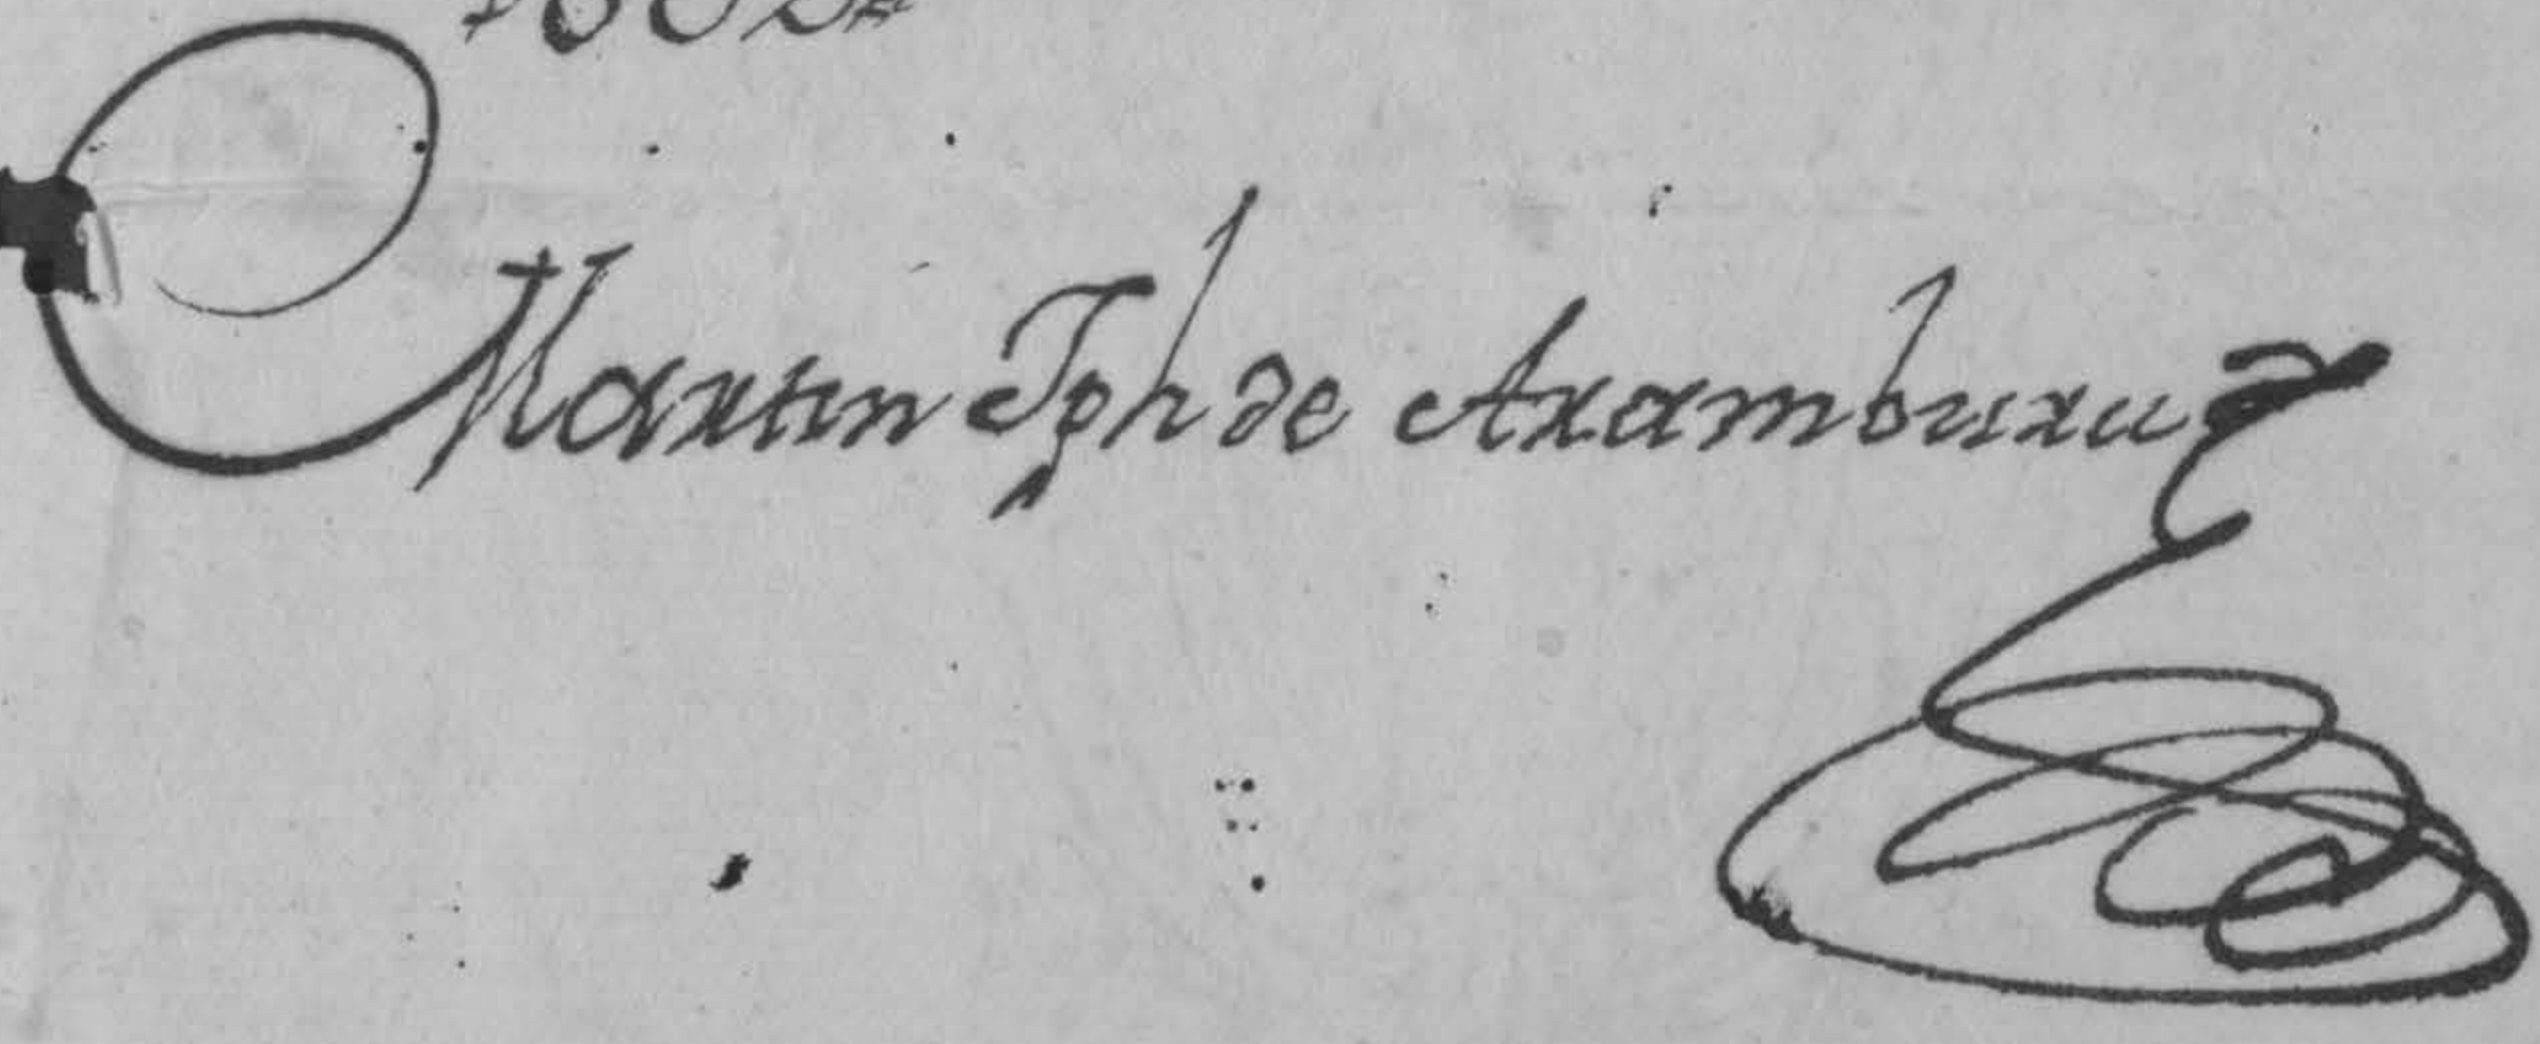 Martin Jph de Aramburu